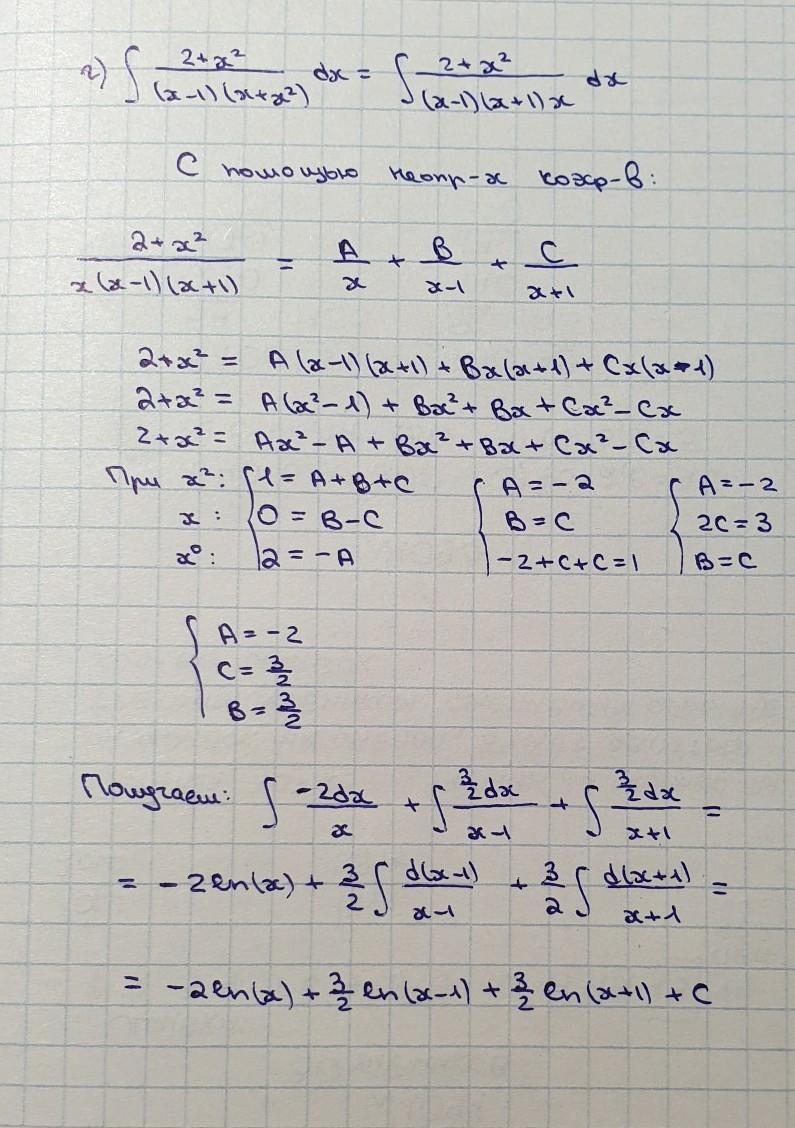 г) ∫ (2+x²)/((x-1)(x+x²)) dx = ∫ (2+x²)/((x-1)(x+1)x) dx
С помощью неопр-х коэф-в:
(2+x²)/(x(x-1)(x+1)) = A/x + B/(x-1) + C/(x+1)
2+x² = A(x-1)(x+1) + Bx(x+1) + Cx(x-1)
2+x² = A(x²-1) + Bx² + Bx + Cx² - Cx
2+x² = Ax² - A + Bx² + Bx + Cx² - Cx
При x²: { 1 = A+B+C { A = -2 { A = -2
x: 0 = B-C B = C 2C = 3
x⁰: 2 = -A -2+C+C=1 B = C
{ A = -2
C = 3/2
B = 3/2
Получаем: ∫ -2dx/x + ∫ (3/2 dx)/(x-1) + ∫ (3/2 dx)/(x+1) =
= -2ln(x) + 3/2 ∫ d(x-1)/(x-1) + 3/2 ∫ d(x+1)/(x+1) =
= -2ln(x) + 3/2 ln(x-1) + 3/2 ln(x+1) + C